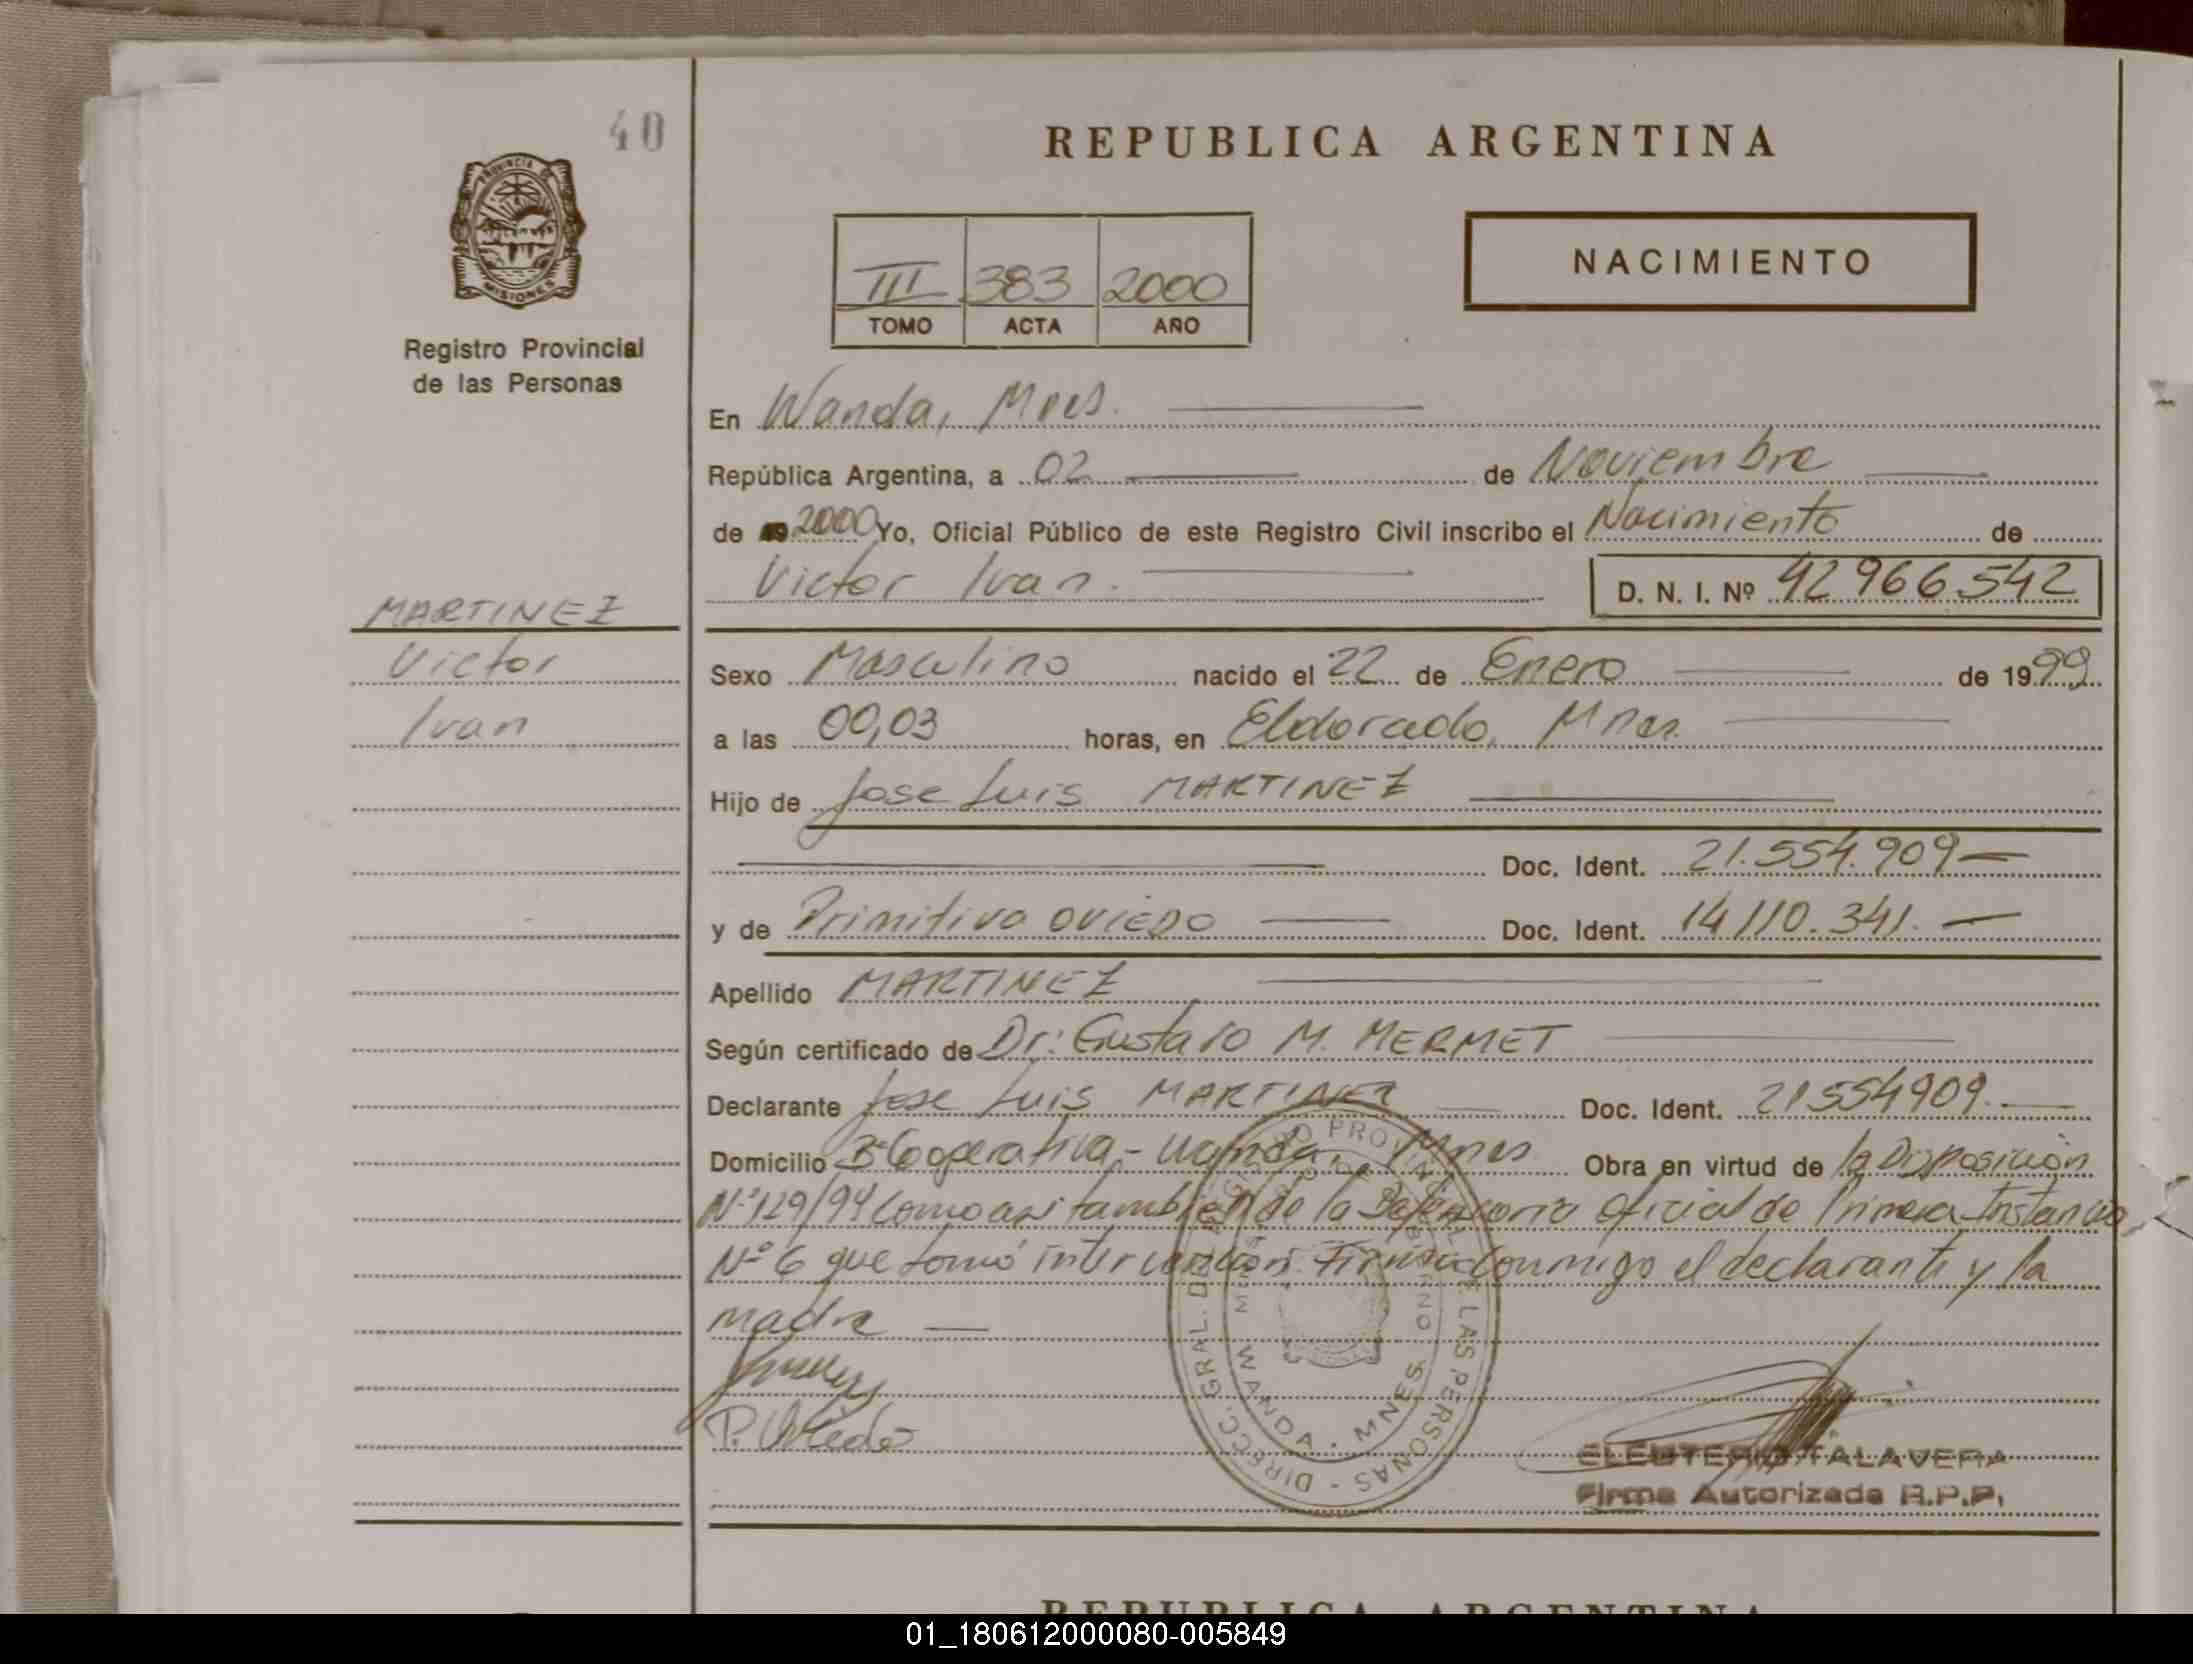 40
REPUBLICA ARGENTINA
PROVINCIA D
MISIONES
Registro Provincial
de las Personas
III 383 2000
TOMO ACTA AÑO
NACIMIENTO
En Wanda, Mnes.
República Argentina, a 02 de Noviembre
de 2000 Yo, Oficial Público de este Registro Civil inscribo el Nacimiento de
Victor Ivan.
D. N. I. Nº 42966.542
MARTINEZ
Victor
Ivan
Sexo Masculino nacido el 22 de Enero de 1999
a las 00,03 horas, en Eldorado, Mnes.
Hijo de Jose Luis MARTINEZ
Doc. Ident. 21.554.909
y de Primitiva OVIEDO Doc. Ident. 14.110.341.
Apellido MARTINEZ
Según certificado de Dr: Gustavo M. MERMET
Declarante Jose Luis MARTINEZ Doc. Ident. 21554909.
Domicilio Bº Cooperativa - Wanda, Mnes Obra en virtud de la Disposición
Nº 129/94 como asi tambien de la Defensoria Oficial de Primera Instancia
Nº 6 que tomó intervención. Firma conmigo el declarante y la
madre
P. Oviedo
DIRECC. GRAL. DEL REGISTRO PROVINCIAL DE LAS PERSONAS
WANDA - MNES
ELEUTERIO TALAVERA
Firma Autorizada R.P.P.
REPUBLICA ARGENTINA
01_180612000080-005849